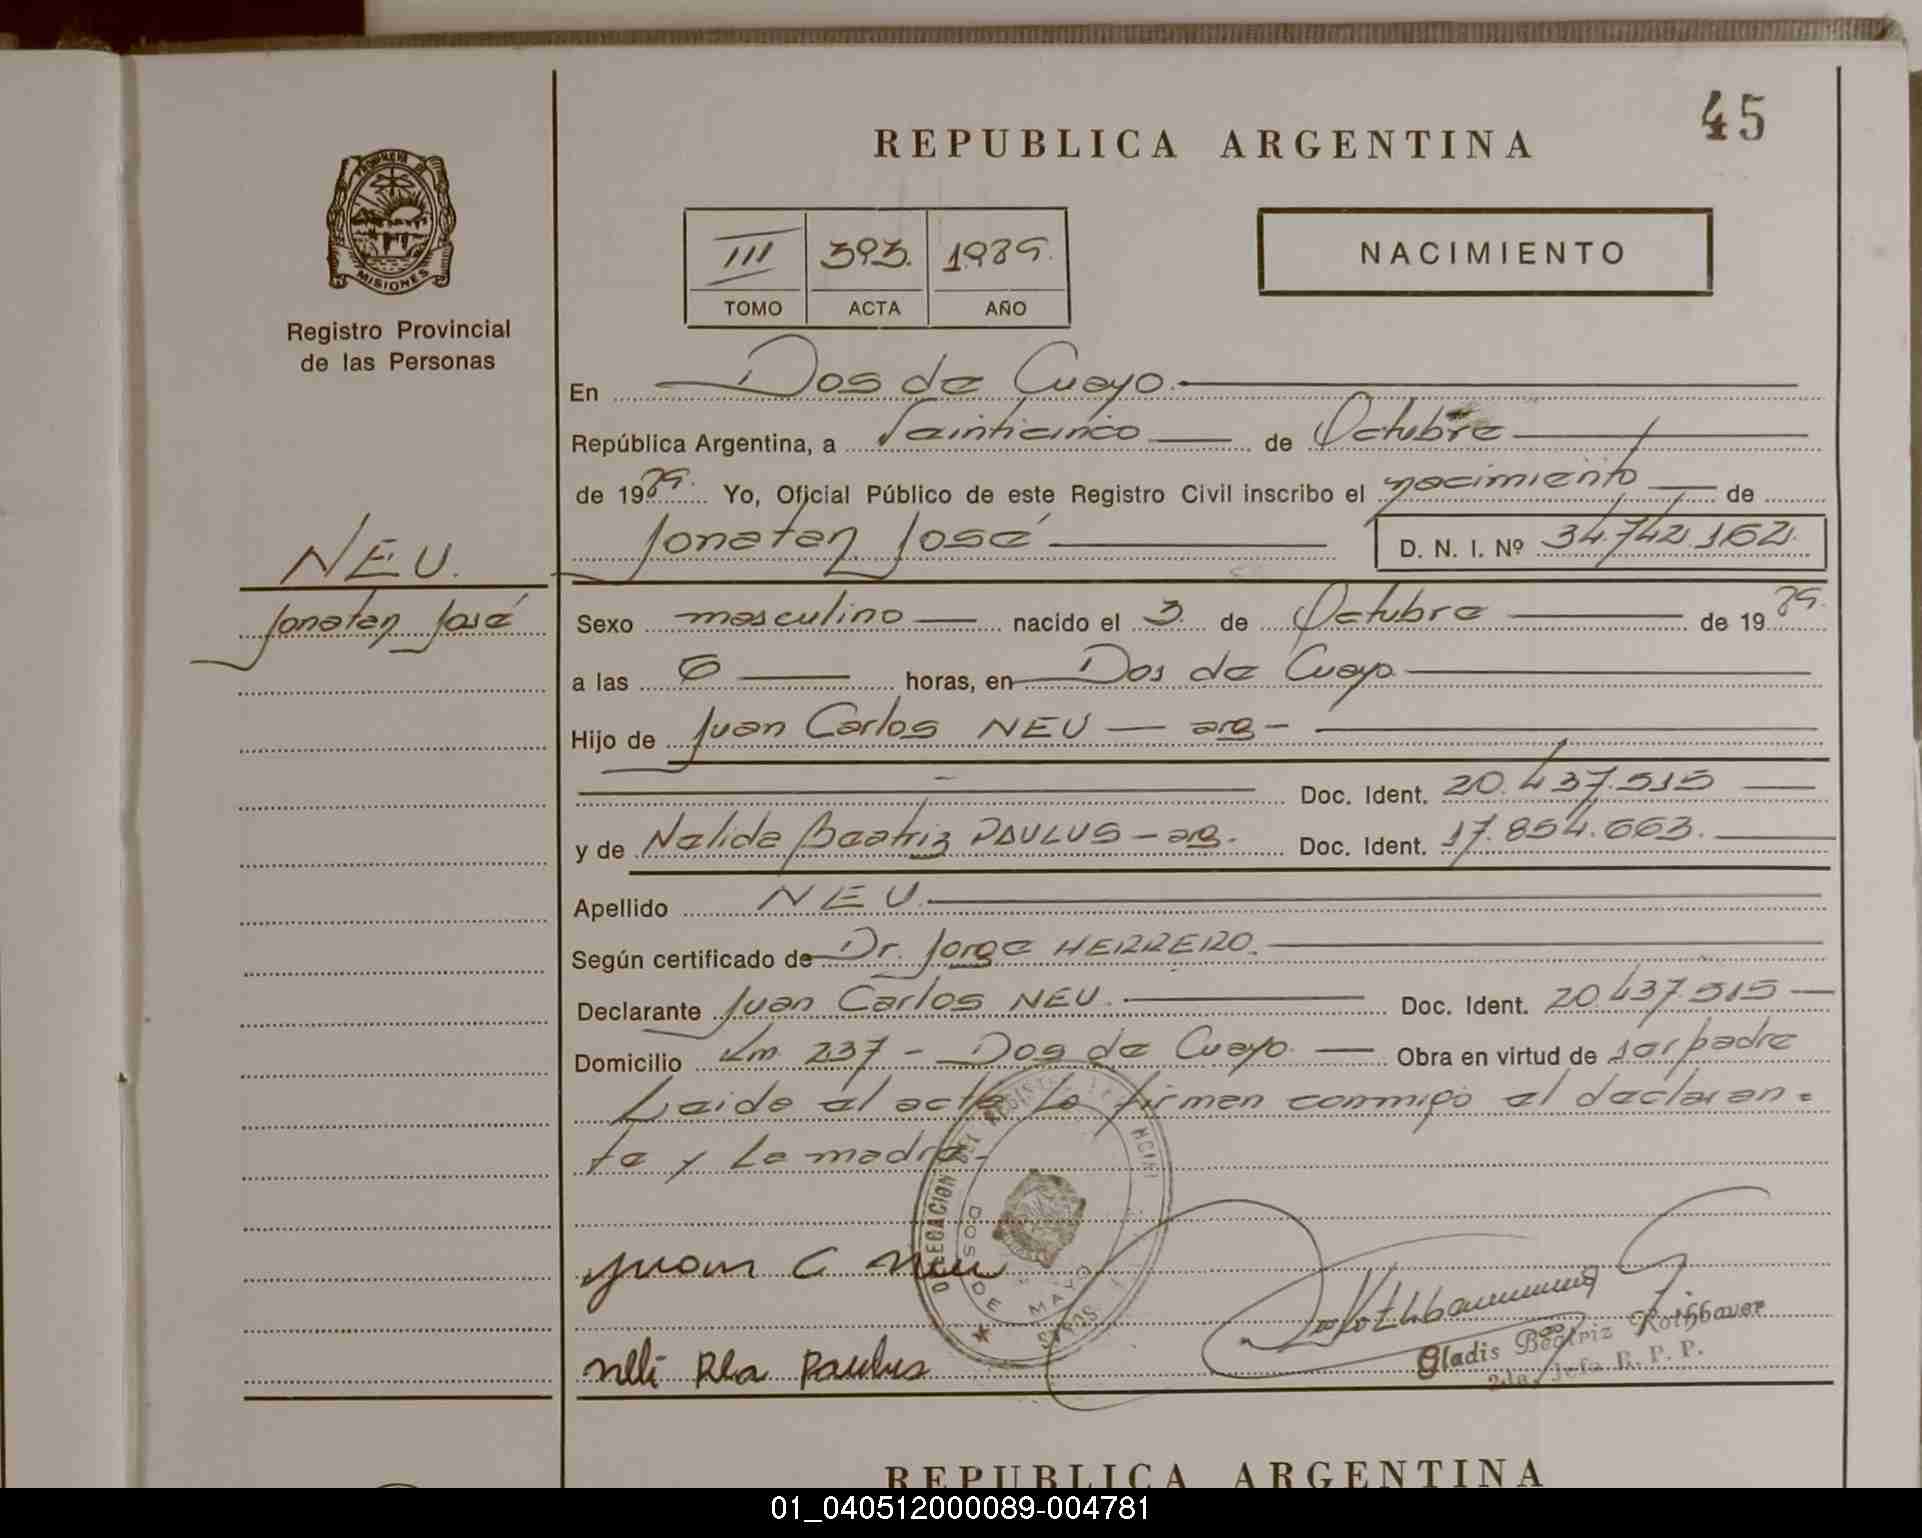 45
REPUBLICA ARGENTINA
PROVINCIA DE
MISIONES
Registro Provincial
de las Personas
III 393. 1989.
TOMO ACTA AÑO
NACIMIENTO
En Dos de Cuayo.
República Argentina, a Veinticinco de Octubre
de 1989. Yo, Oficial Público de este Registro Civil inscribo el nacimiento de
Jonatan José D. N. I. Nº 34.742.162.
NEU.
Jonatan José
Sexo masculino nacido el 3 de Octubre de 1989.
a las 6 horas, en Dos de Cuayo.
Hijo de Juan Carlos NEU — arg -
Doc. Ident. 20.437.515
y de Nelida Beatriz PAULUS - arg. Doc. Ident. 17.854.663.
Apellido NEU.
Según certificado de Dr. Jorge HERRERO.
Declarante Juan Carlos NEU. Doc. Ident. 20.437.515
Domicilio Km. 237 - Dos de Cuayo. Obra en virtud de ser padre
Leida el acta La firman conmigo el declaran=
te y La madre-
DELEGACION DEL REGISTRO
DOS DE MAYO
Juan C Neu
Rothbauer
Gladis Beatriz Rothbauer
2da. Jefa R. P. P.
Nlli Rla Paulus
REPUBLICA ARGENTINA
01_040512000089-004781